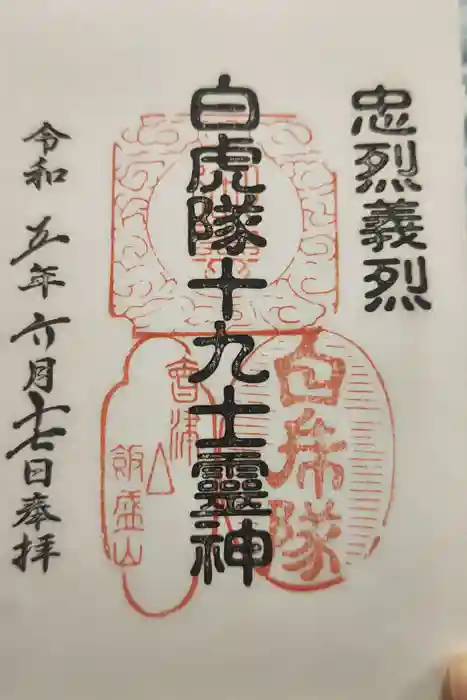 忠烈義烈
白虎隊十九士靈神
白虎隊
會津
飯盛山
令和五年六月十七日奉拝